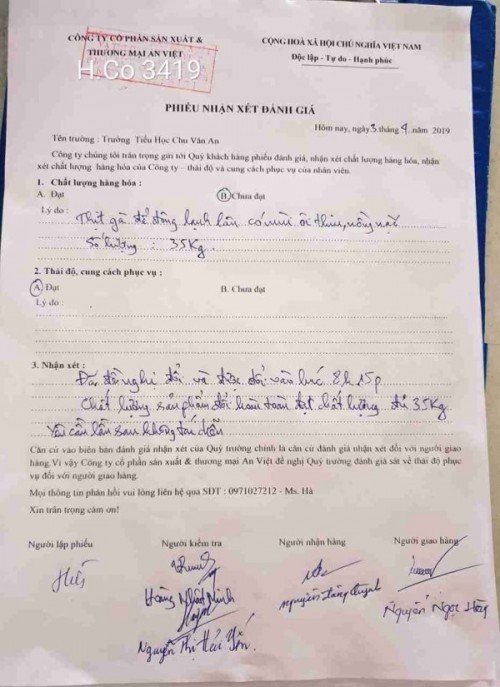 CÔNG TY CỔ PHẦN SẢN XUẤT &
THƯƠNG MẠI AN VIỆT
H.Cỏ 3419
CỘNG HOÀ XÃ HỘI CHỦ NGHĨA VIỆT NAM
Độc lập - Tự do - Hạnh phúc
PHIẾU NHẬN XÉT ĐÁNH GIÁ
Hôm nay, ngày 3 tháng 9 năm 2019
Tên trường : Trường Tiểu Học Chu Văn An
Công ty chúng tôi trân trọng gửi tới Quý khách hàng phiếu đánh giá, nhận xét chất lượng hàng hóa, nhận
xét chất lượng hàng hóa của Công ty – thái độ và cung cách phục vụ của nhân viên.
1. Chất lượng hàng hóa :
A. Đạt B. Chưa đạt
Lý do : Thịt gà để đông lạnh lẫn có mùi ôi thiu, nồng nặc
Số lượng : 35Kg.
2. Thái độ, cung cách phục vụ :
A. Đạt B. Chưa đạt
Lý do :
3. Nhận xét :
Đã đề nghị đổi và được đổi vào lúc 8h15p
Chất lượng sản phẩm đổi hoàn toàn đạt chất lượng đủ 35Kg
Yêu cầu lần sau không tái diễn
Căn cứ vào biên bản đánh giá nhận xét của Quý trường chính là căn cứ đánh giá nhận xét đối với người giao
hàng.Vì vậy Công ty cổ phần sản xuất & thương mại An Việt đề nghị Quý trường đánh giá sát về thái độ phục
vụ đối với người giao hàng.
Mọi thông tin phản hồi vui lòng liên hệ qua SĐT : 0971027212 - Ms. Hà
Xin trân trọng cảm ơn!
Người lập phiếu Người kiểm tra Người nhận hàng Người giao hàng
Hoàng Nhật Minh
Nguyễn Thị Hải Yến
Nguyễn Ngọc